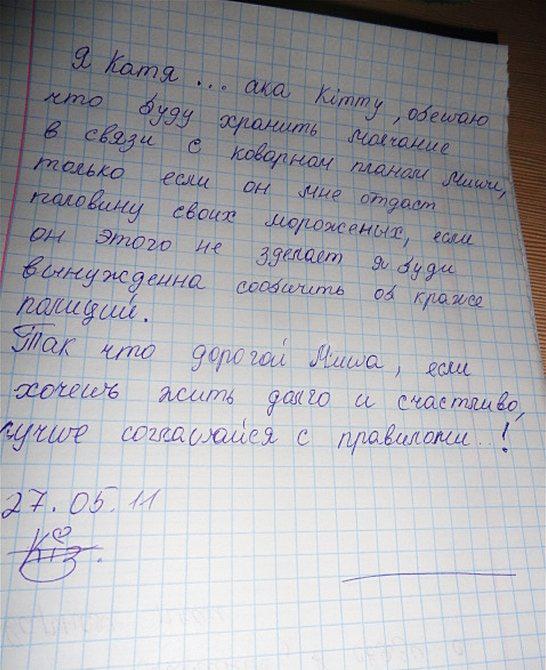 Я Катя ... ака Кітту, обещаю
что буду хранить молчание
в связи с коварном планом Миши,
только если он мне отдаст
половину своих мороженых, если
он этого не зделает я буди
вынужденна сообичить об краже
полиций.
Так что дорогой Миша, если
хочешь жить долго и счастливо,
лучше соглашайся с правилами..!
27.05.11